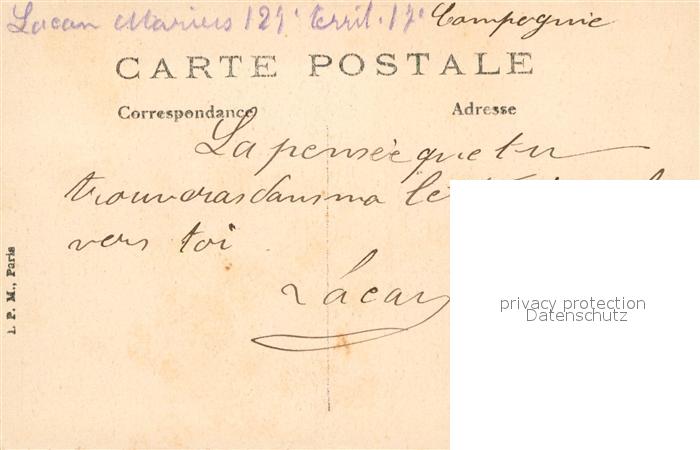 Lacan Marius 127e Territ. 17e Compagnie
CARTE POSTALE
Correspondance Adresse
La pensée que tu
trouveras dans ma
vers toi
Lacan
I. P. M., Paris
privacy protection
Datenschutz